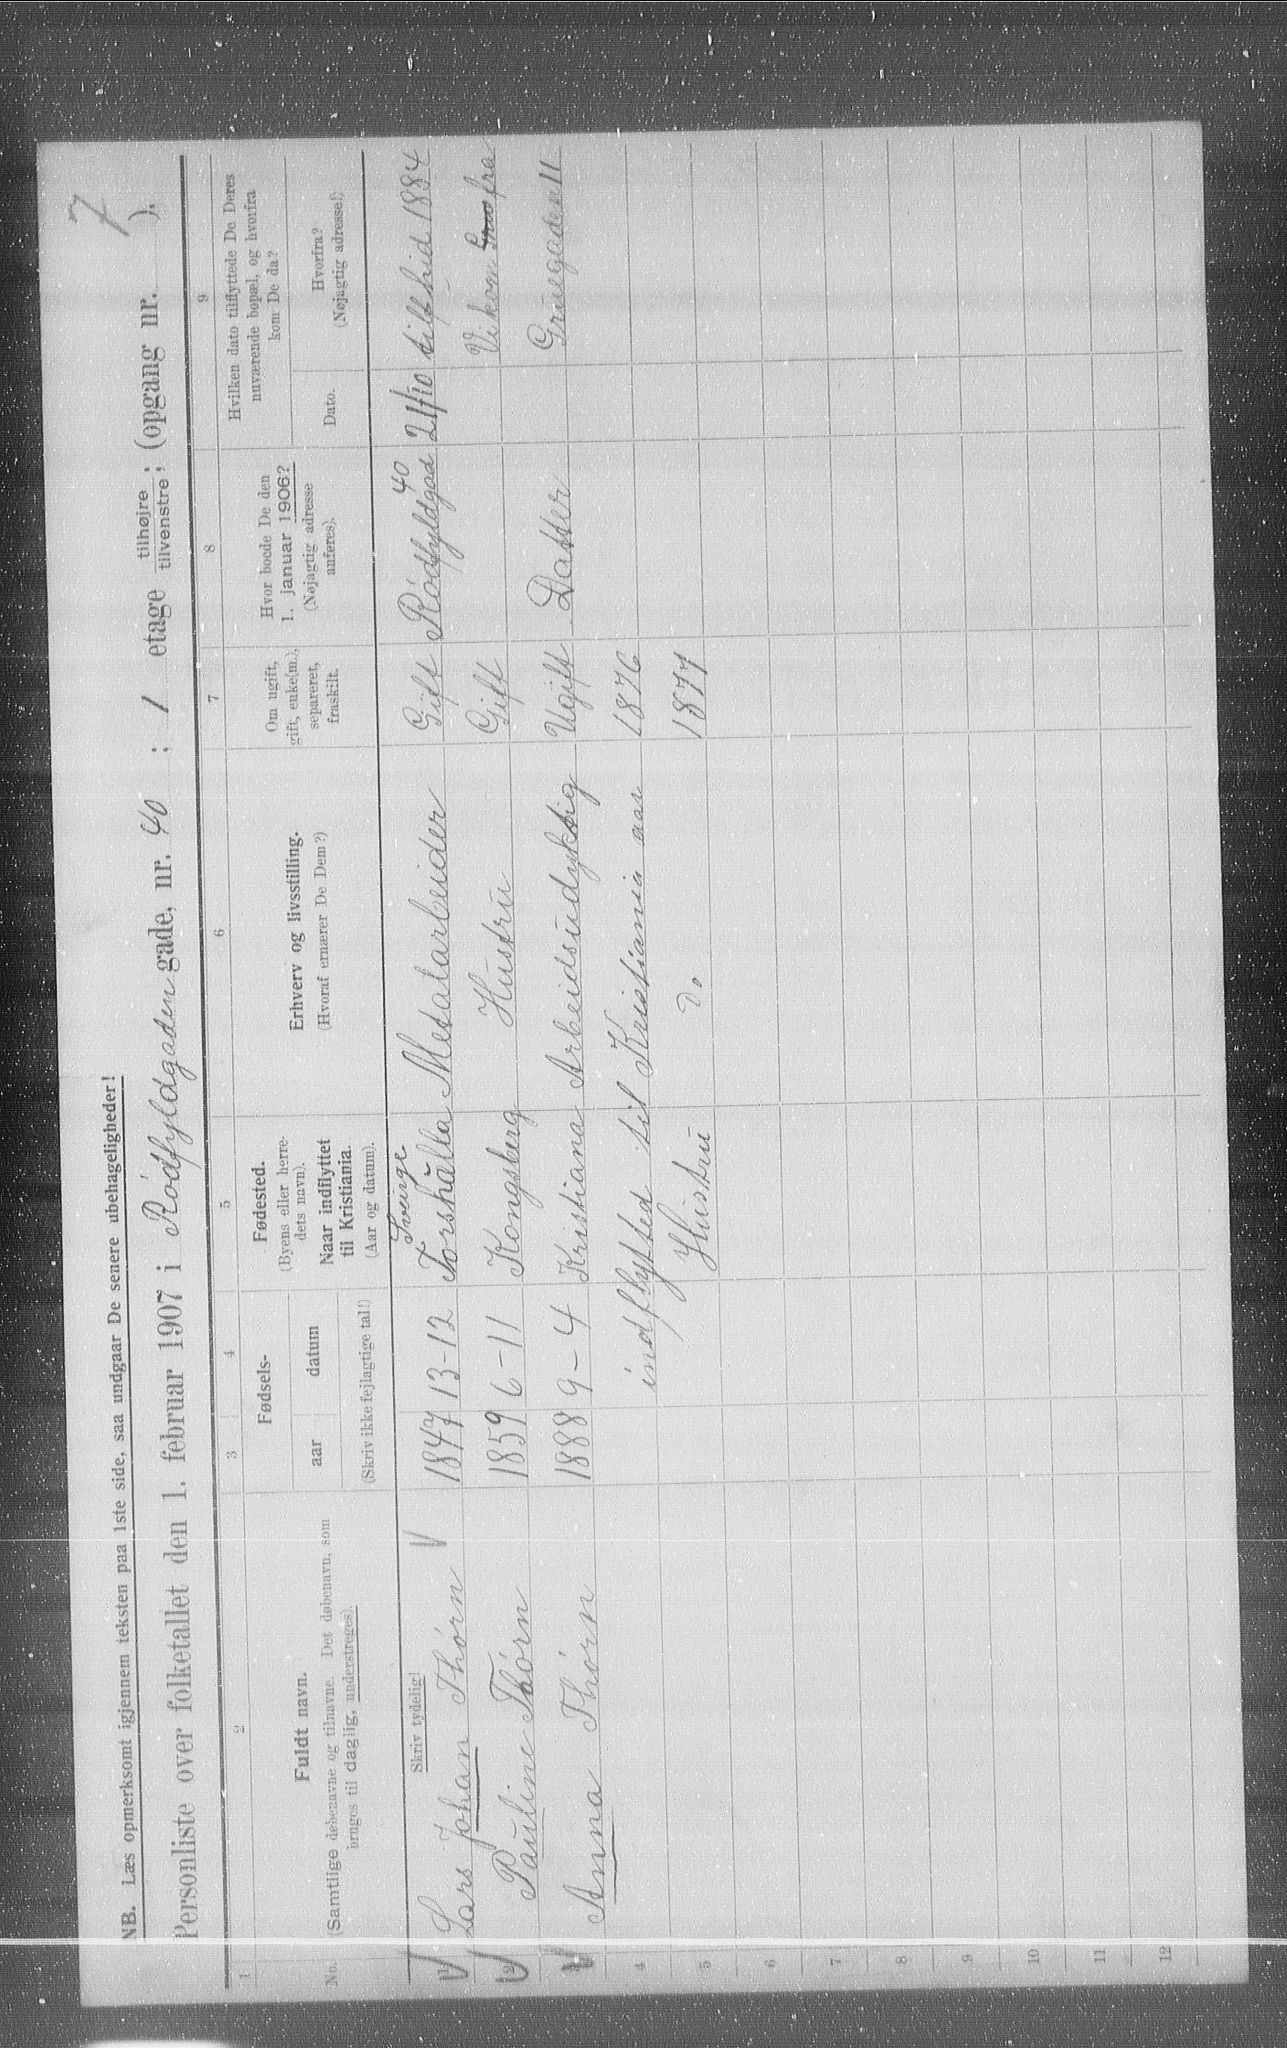 7
NB. Læs opmerksomt igjennem teksten paa 1ste side, saa undgaar De senere ubehageligheder!
Personliste over folketallet den 1. februar 1907 i Rödfyldgaden gade, nr. 40 ; 1 etage tilhøjre / tilvenstre ; (opgang nr. ).
1 2 3 4 5 6 7 8 9
No.
Fuldt navn.
(Samtlige døbenavne og tilnavne. Det døbenavn, som
bruges til daglig, understreges).
Fødsels-
aar datum
(Skriv ikke fejlagtige tal!)
Fødested.
(Byens eller herre-
dets navn).
Naar indflyttet
til Kristiania.
(Aar og datum).
Erhverv og livsstilling.
(Hvoraf ernærer De Dem?)
Om ugift,
gift, enke(m.),
separeret,
fraskilt.
Hvor boede De den
1. januar 1906?
(Nøjagtig adresse
anføres).
Hvilken dato tilflyttede De Deres
nuværende bopæl, og hvorfra
kom De da?
Dato.
Hvorfra?
(Nøjagtig adresse!)
Skriv tydelig!
Sverige 40
1 Lars Johan Thórn 1847 13-12 Torshälla Metalarbeider GiftRódfyldgad 21/10 tilfhid 1884
2 Pauline Thórn 1859 6-11 Kongsberg Hustru Gift Vi kom fra
3 Anna Thórn 1888 9-4 Kristiana Arbeidsudyktig Ugift Datter Gruegaden 11
4 indflytted til Kristiania aar 1876
5 Hustru Do 1877
6
7
8
9
10
11
12